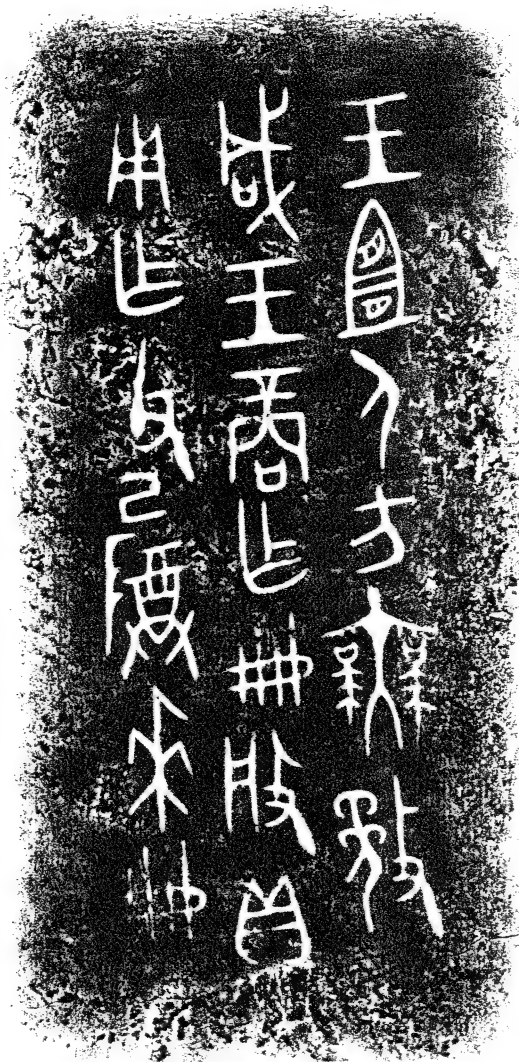 王宜人方無敄
咸王商乍冊般貝
用乍父己尊來冊